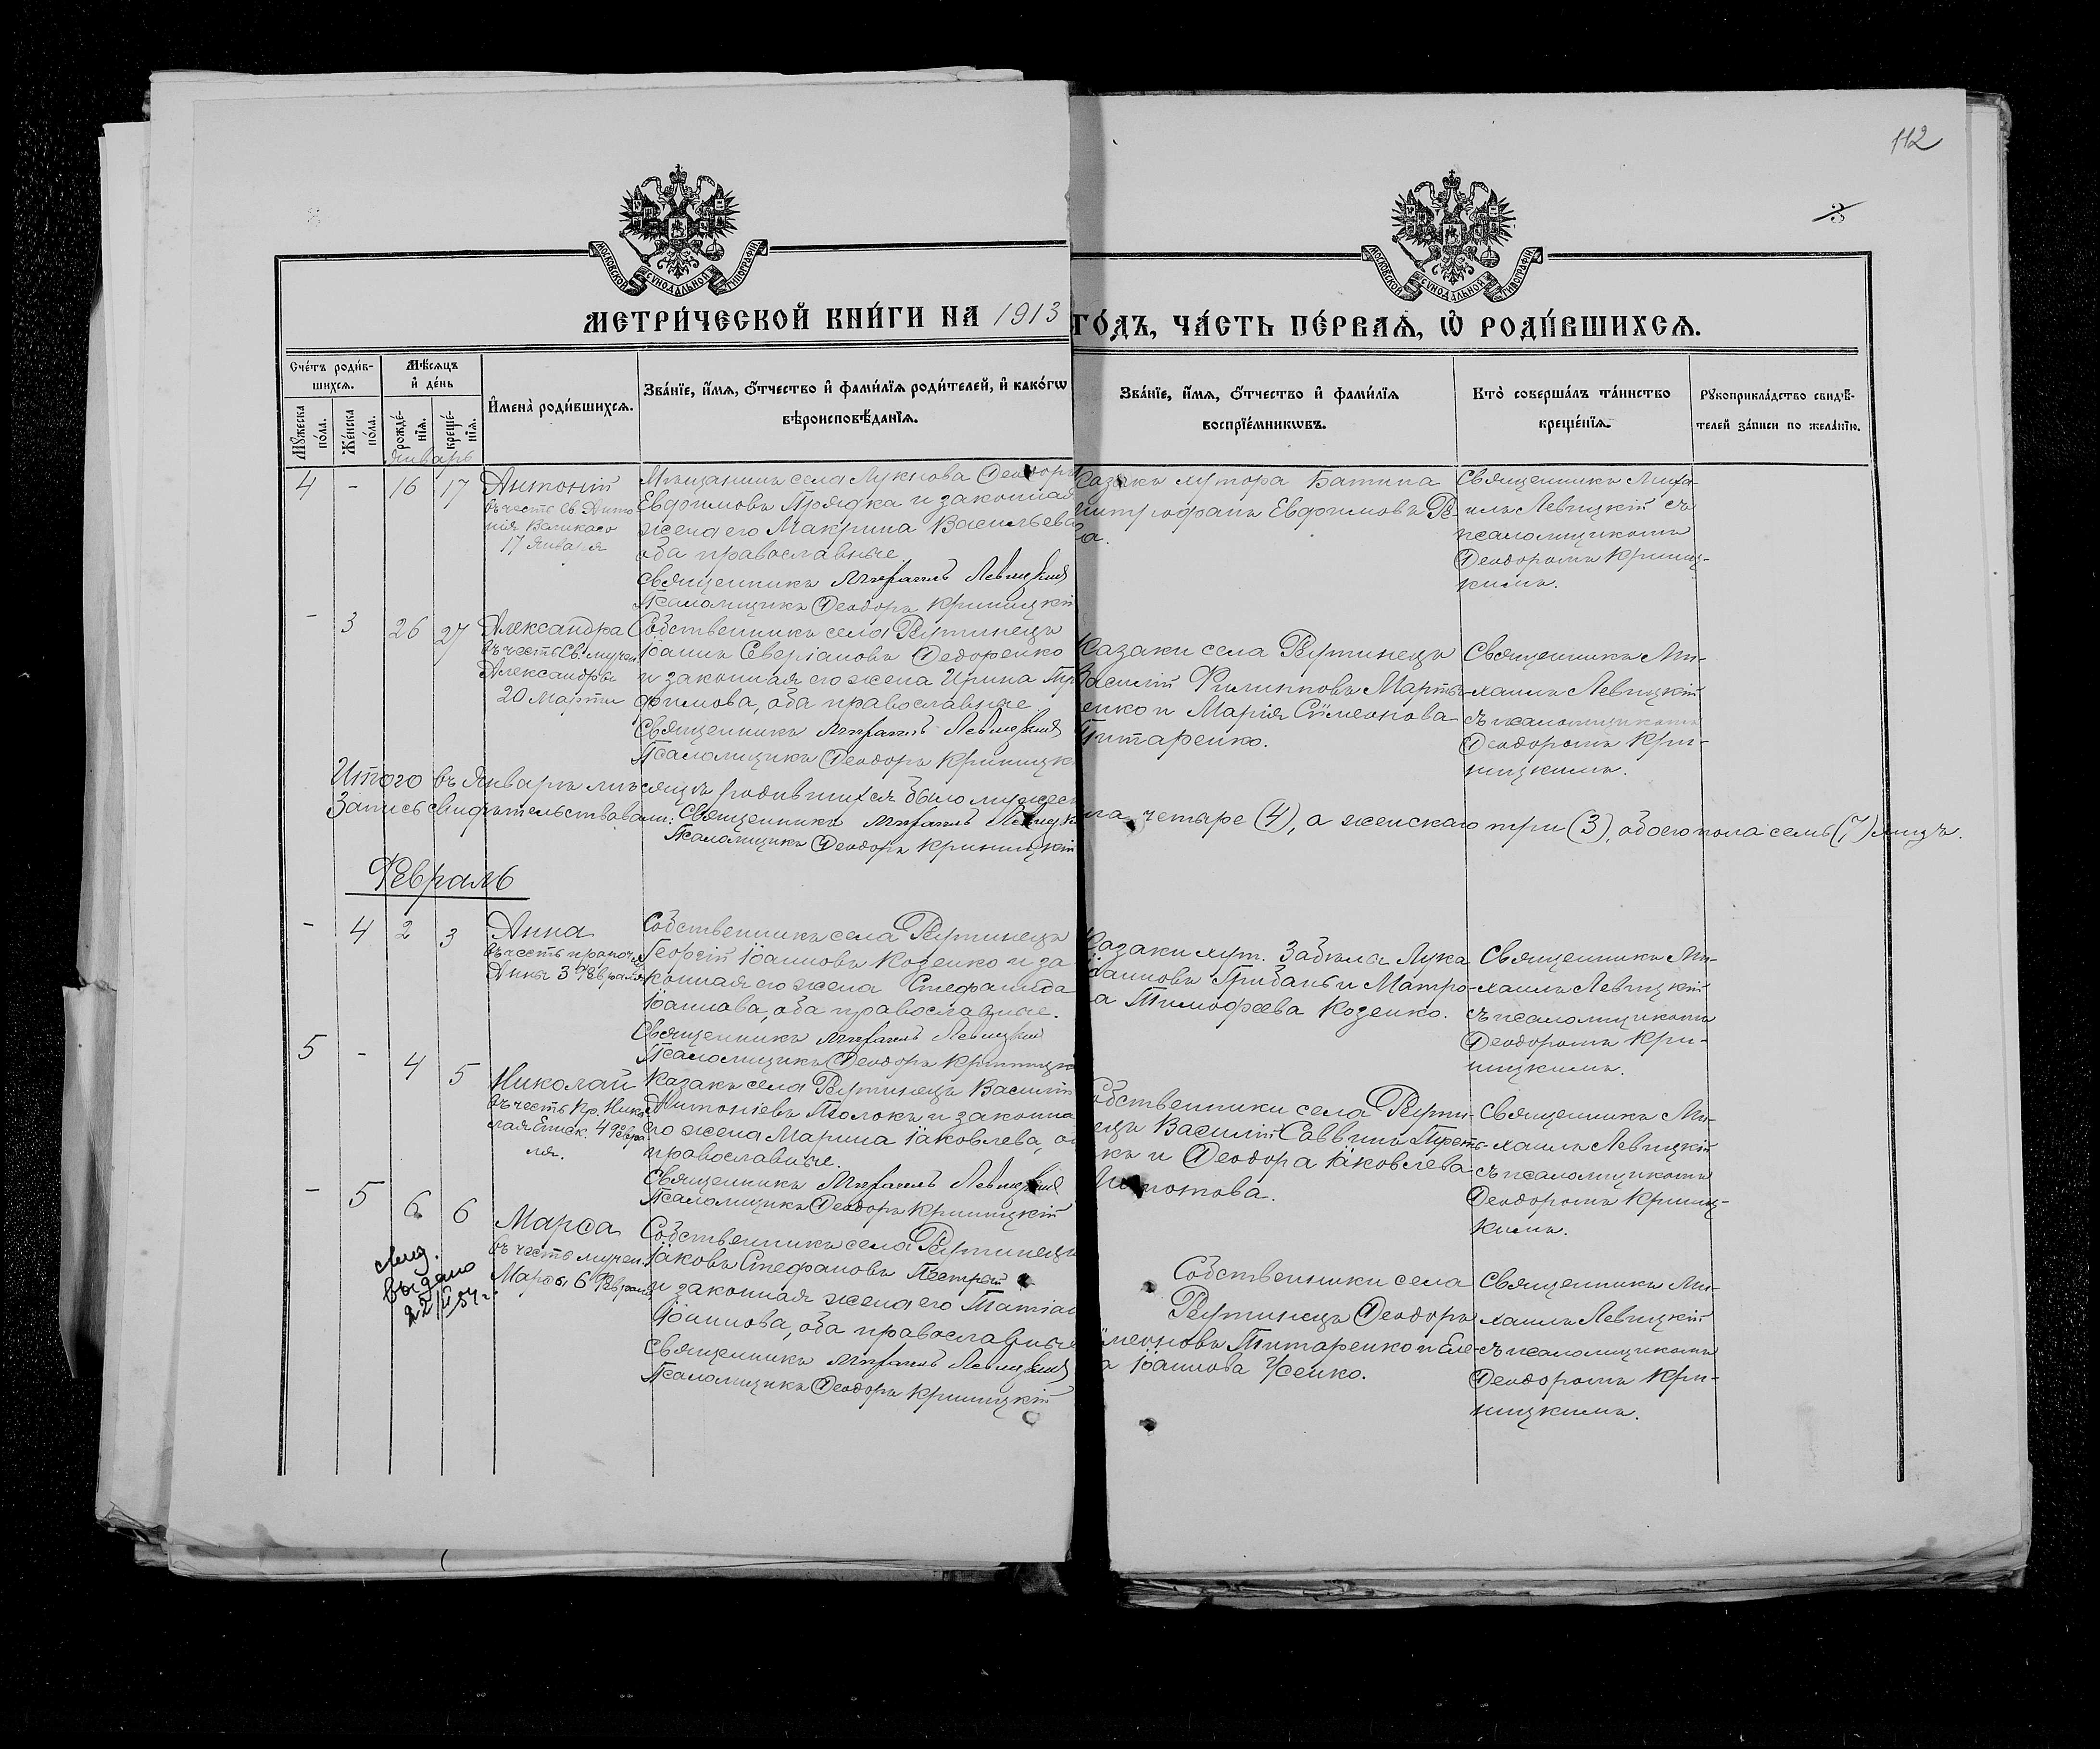 112
3
МОСКОВСКОЙ СѴНОДАЛЬНОЙ ТИПОГРАФІИ
МОСКОВСКОЙ СѴНОДАЛЬНОЙ ТИПОГРАФІИ
МЕТРИ́ЧЕСКОЙ КНИ́ГИ НА 1913 ГО́ДЪ, ЧА́СТЬ ПЕ́РВАѦ, Ѡ҆ РОДИ́ВШИХСѦ.
Сче́тъ роди́вшихсѧ.
Мꙋ́жеска по́ла.
Же́нска по́ла.
Мѣ́сѧцъ и҆ де́нь
рожде́нїѧ.
креще́нїѧ.
И҆мена̀ роди́вшихсѧ.
Зва́нїе, и҆́мѧ, ѻ҆́тчество и҆ фами́лїѧ роди́телей, и҆ како́гѡ
вѣроисповѣ́данїѧ.
Зва́нїе, и҆́мѧ, ѻ҆́тчество и҆ фами́лїѧ
воспрїе́мникѡвъ.
Кто̀ соверша́лъ та́инство
креще́нїѧ.
Рꙋкоприкла́дство свидѣ́-
телей за́писи по жела́нїю.
Январь
4 - 16 17
Антоній
въ честь Св. Анто
нія Великаго
17 Января
Мѣщанинъ села Лукнова Ѳеодоръ
Евфимовъ Прядка и законная
жена его Макрина Васильева
оба православные.
Священникъ Михаилъ Левицкий
Псаломщикъ Ѳеодоръ Криницкій
Казакъ хутора Батина
Митрофанъ Евфимовъ
Священникъ Миха-
илъ Левицкій съ
псаломщикомъ
Ѳеодоромъ Криниц-
кимъ.
- 3 26 27
Александра
въ честь Св. мучен.
Александры
20 Марта
Собственникъ села Рутинецъ
Іоаннъ Северіановъ Ѳедоренко
и законная его жена Ирина Тр
фимова, оба православные
Священникъ Михаилъ Левицкий
Псаломщикъ Ѳеодоръ Криницк
Казаки села Рутинецъ
Василій Филипповъ Марты-
енко и Марія Сѵмеонова
Титаренко.
Священникъ Ми-
хаилъ Левицкій
съ псаломщикомъ
Ѳеодоромъ Кри-
ницкимъ.
Итого въ Январѣ мѣсяцѣ родившихся было мужес
ка четыре (4), а женскаго три (3), обоего пола семь (7) лицъ.
Запись свидѣтельствовали: Священникъ Михаилъ Левицк
Псаломщикъ Ѳеодоръ Криницкій
Февраль
- 4 2 3
Анна
въ честь пророчиц.
Анны 3 Февраля
Собственникъ села Рутинецъ
Георгій Іоанновъ Козенко и за
конная его жена Стефанида
Іоаннова, оба православные.
Священникъ Михаилъ Левицкий
Псаломщикъ Ѳеодоръ Криницкій
Казаки хут. Забѣла Лука
Іоанновъ Грибань и Матро-
а Тимофеева Козенко.
Священникъ Ми-
хаилъ Левицкій
съ псаломщикомъ
Ѳеодоромъ Кри-
ницкимъ.
5 - 4 5
Николай
въ честь пр. Нико
лая Списк. 4 Февра
ля.
Казакъ села Рутинецъ Василій
Антоніевъ Толока и законна
его жена Марина Іаковлева, об
православные.
Священникъ Михаилъ Левицкий
Псаломщикъ Ѳеодоръ Криницкій
обственники села Рути-
ецъ Василій Саввинъ Треть-
къ и Ѳеодора Іаковлева
Священникъ Ми-
хаилъ Левицкій
съ псаломщикомъ
Ѳеодоромъ Криниц-
кимъ.
- 5 6 6
свид.
выдано
22/II 54 г.
Марѳа
въ честь мучен.
Марѳы 6 Февраля
Собственникъ села Рутинецъ
Іаковъ Стефановъ Пестрей
и законная жена его Татіан
Іоаннова, оба православные
Священникъ Михаилъ Левицкий
Псаломщикъ Ѳеодоръ Криницкій
Собственники села
Рутинецъ Ѳеодоръ
ѵмеоновъ Титаренко и Еле-
а Іоаннова Усенко.
Священникъ Ми-
хаилъ Левицкій
съ псаломщикомъ
Ѳеодоромъ Кри-
ницкимъ.